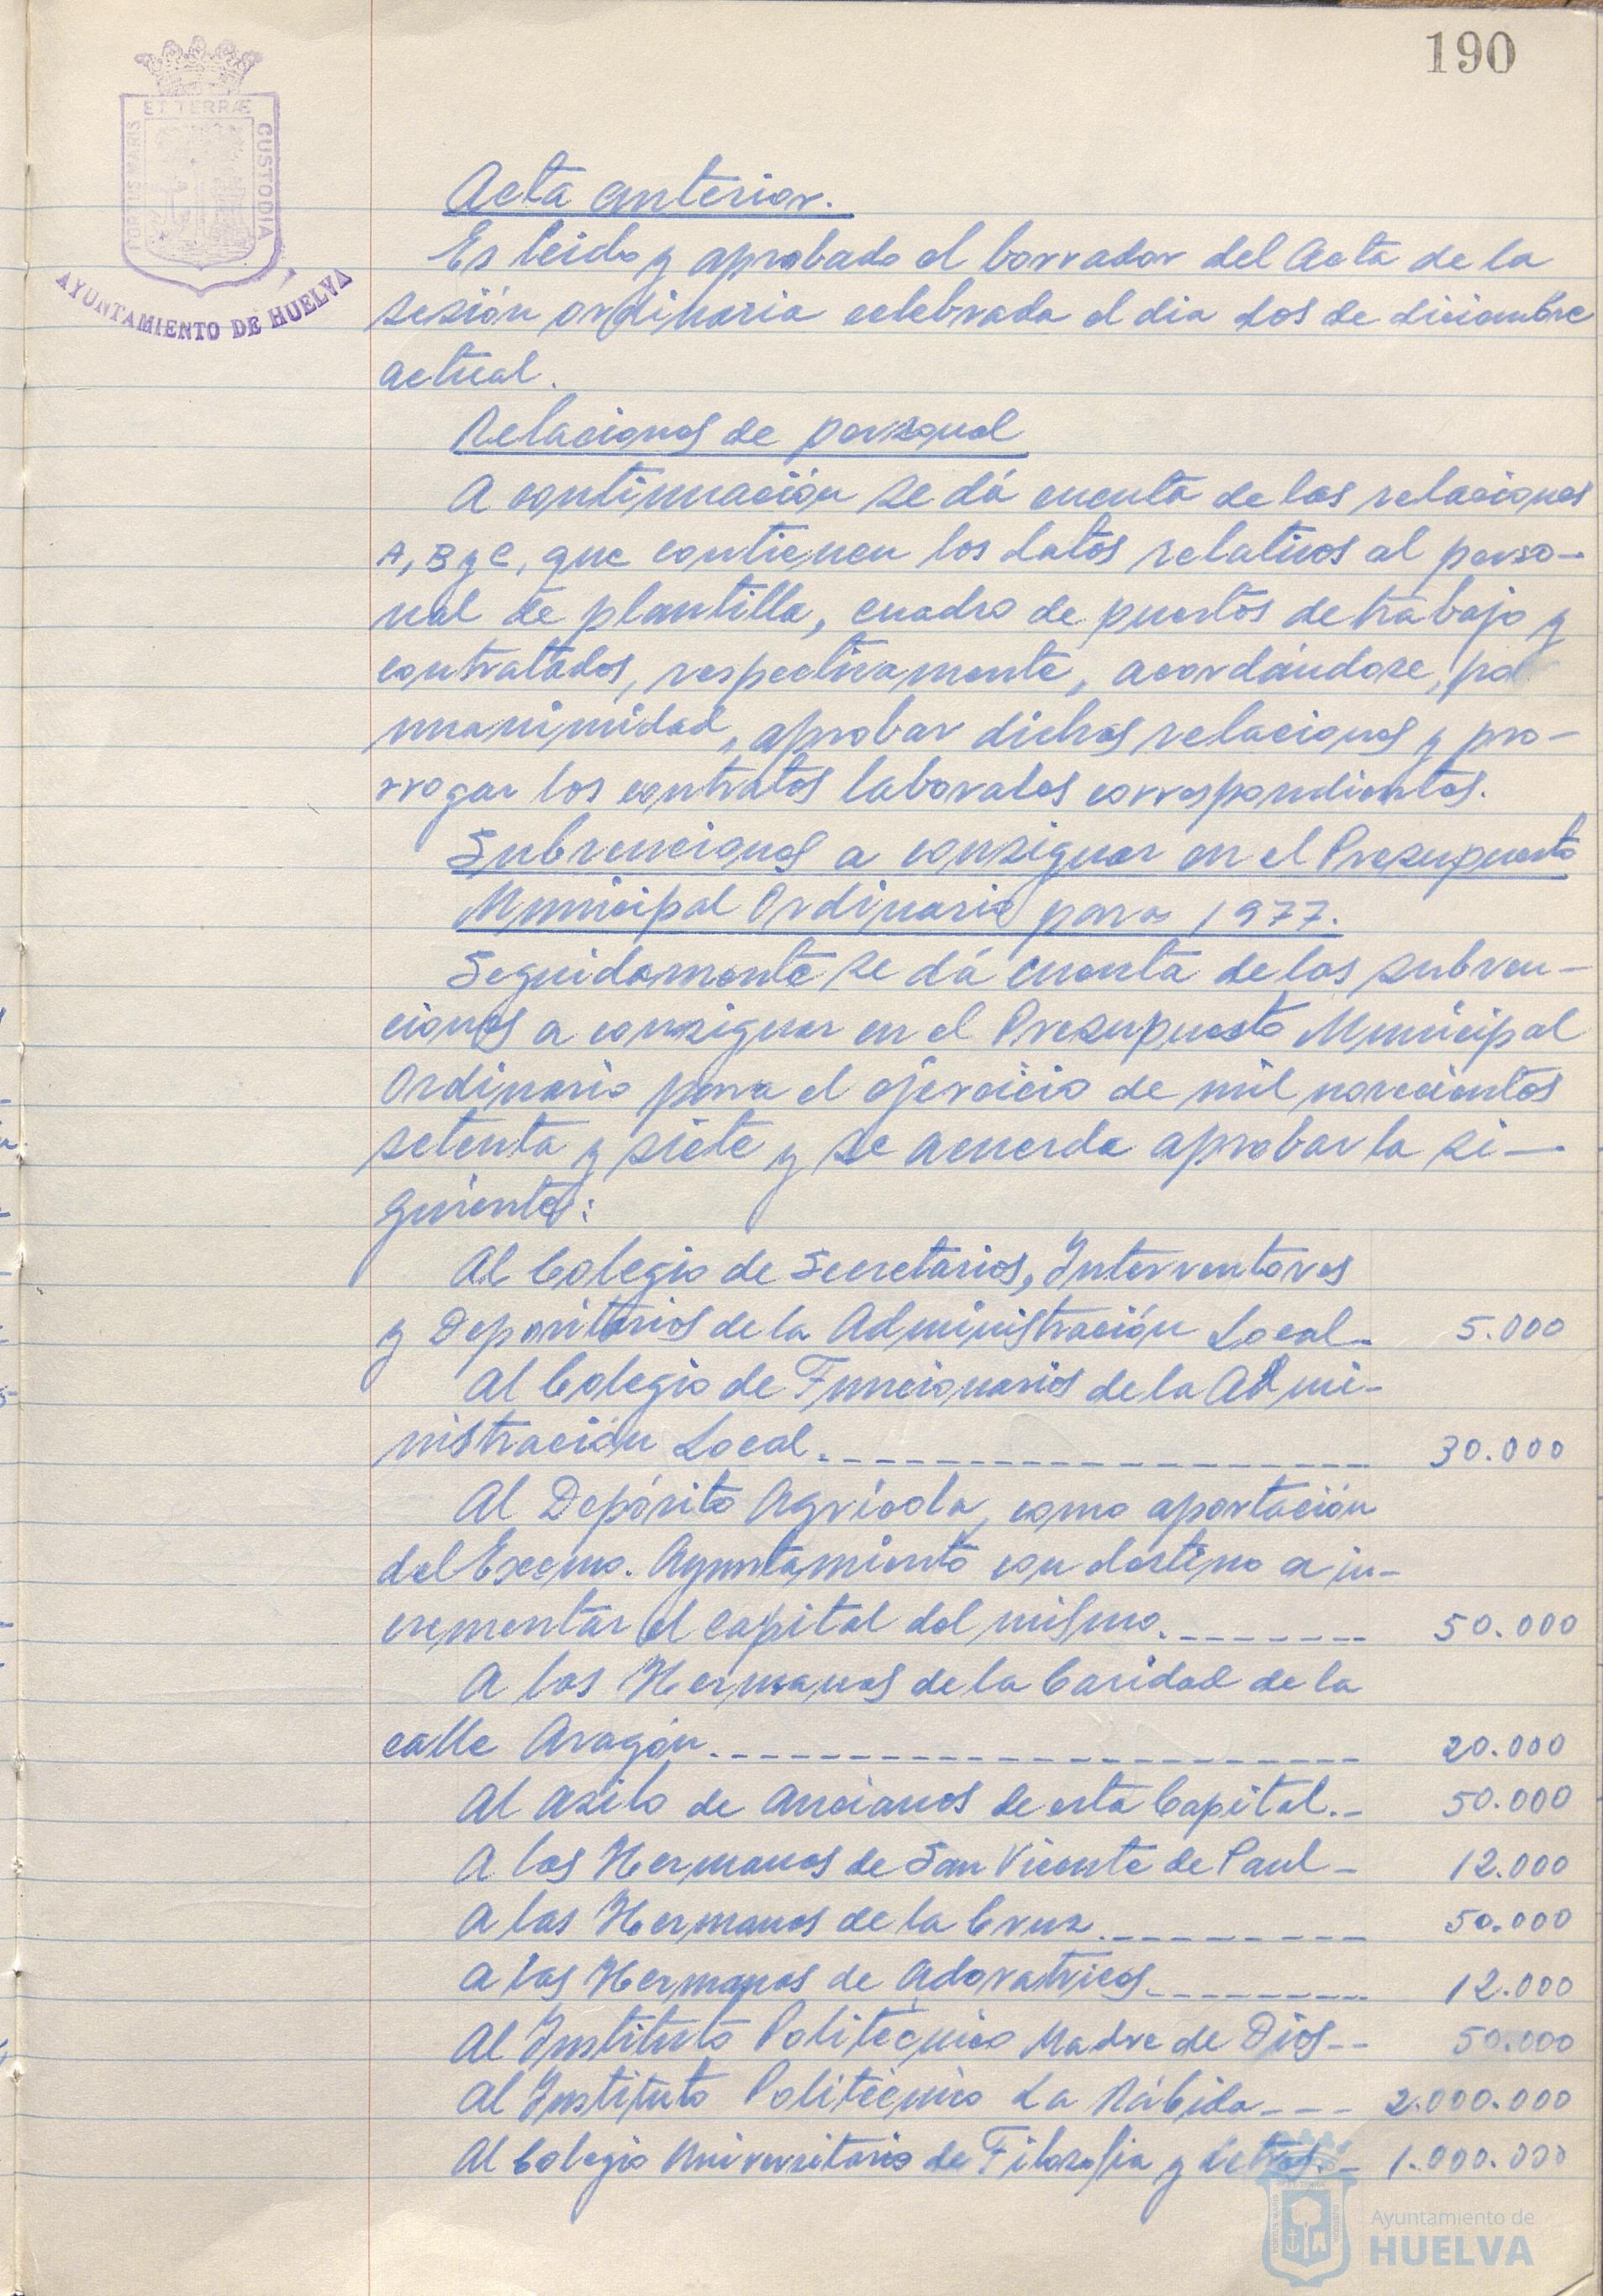 190
ET TERRÆ
PORTUS MARIS
CUSTODIA
AYUNTAMIENTO DE HUELVA
Acta anterior.
Es leido y aprobado el borrador del Acta de la
sesión ordinaria celebrada el dia dos de diciembre
actual.
Relaciones de personal
A continuación se dá cuenta de las relaciones
A, B y C, que contienen los datos relativos al perso-
nal de plantilla, cuadro de puestos de trabajo y
contratados, respectivamente, acordándose, por
unanimidad, aprobar dichas relaciones y pro-
rrogar los contratos laborales correspondientes.
Subvenciones a consignar en el Presupuesto
Municipal Ordinario para 1977.
Seguidamente se dá cuenta de las subven-
ciones a consignar en el Presupuesto Municipal
Ordinario para el ejercicio de mil novecientos
setenta y siete y se acuerda aprobar la si-
guiente:
Al Colegio de Secretarios, Interventores
y Depositarios de la Administración Local- 5.000
Al Colegio de Funcionarios de la Admi-
nistración Local.------------------- 30.000
Al Depósito Agrícola, como aportación
del Excmo. Ayuntamiento con destino a in-
crementar el capital del mismo.------- 50.000
A las Hermanas de la Caridad de la
calle Aragón.---------------------- 20.000
Al Asilo de Ancianos de esta Capital.- 50.000
A las Hermanas de San Vicente de Paul- 12.000
A las Hermanas de la Cruz.--------- 50.000
A las Hermanas de Adoratrices.-------- 12.000
Al Instituto Politécnico Madre de Dios-- 50.000
Al Instituto Politécnico La Rábida--- 2.000.000
Al Colegio Universitario de Filosofia y Letras.- 1.000.000
Ayuntamiento de
HUELVA